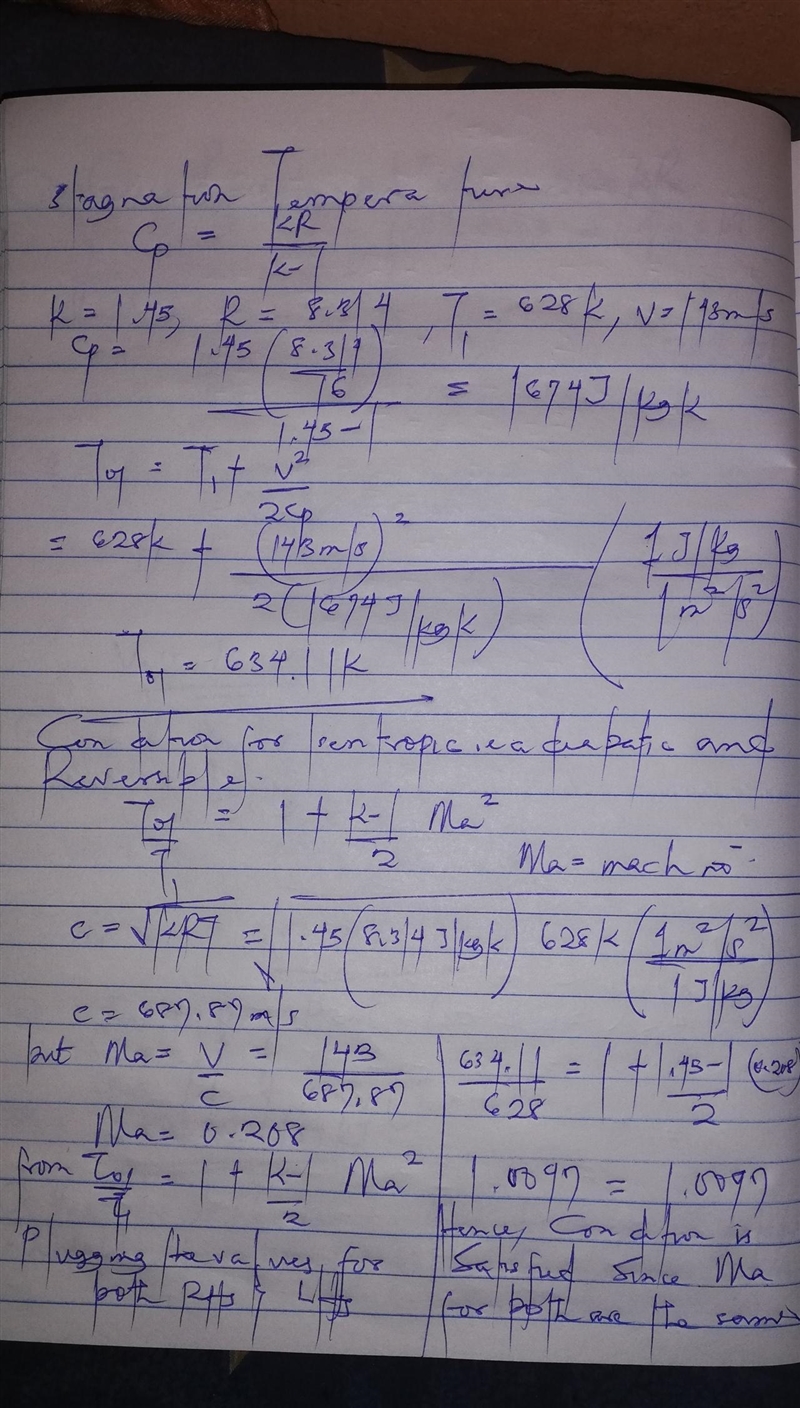 Stagnation Temperature
Cp = KR / K-1
K = 1.45, R = 8.314, T1 = 628K, V = 143m/s
Cp = 1.45 (8.314 / 16) / 1.45-1 = 1674J/kgK
To1 = T1 + V² / 2Cp
= 628K + (143m/s)² / 2(1674J/kgK) (1J/kg / 1m²/s²)
To1 = 634.11K
Condition for isentropic i.e adiabatic and
Reversible.
To1 / T1 = 1 + K-1 / 2 Ma²
Ma = mach no.
c = √KRT = √1.45(8.314J/kgK) 628K (1m²/s² / 1J/kg)
c = 687.87m/s
but Ma = V / c = 143 / 687.87
Ma = 0.208
from To1 / T1 = 1 + K-1 / 2 Ma²
Plugging the values for
both RHS & LHS
634.11 / 628 = 1 + 1.45-1 / 2 (0.208)
1.0097 = 1.0097
Hence, Condition is
Satisfied Since Ma
for both are the same